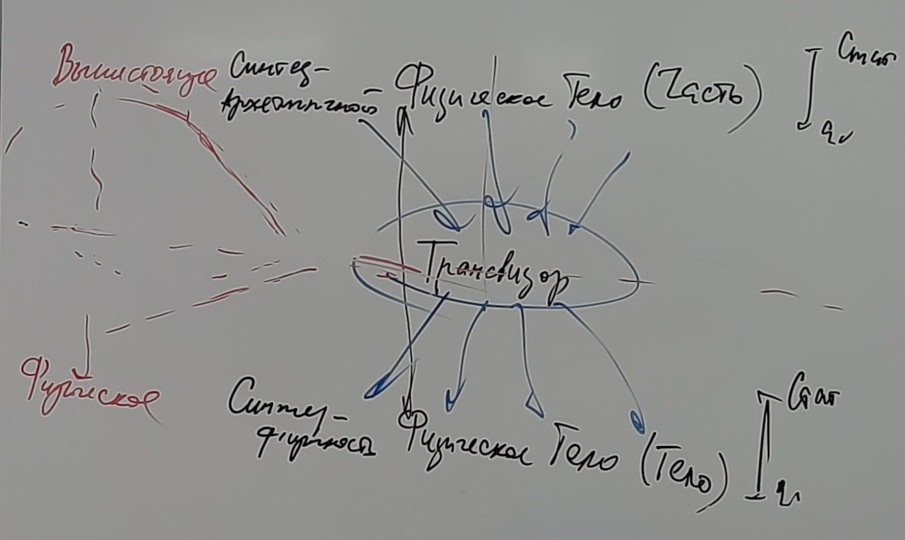 Вышестоящее
Синтез-
Архетипичной
Физическое Тело (Часть)
Стат
Трансвизор
Физическое
Синтез-
физичность
Физическое Тело (Тело)
Стат